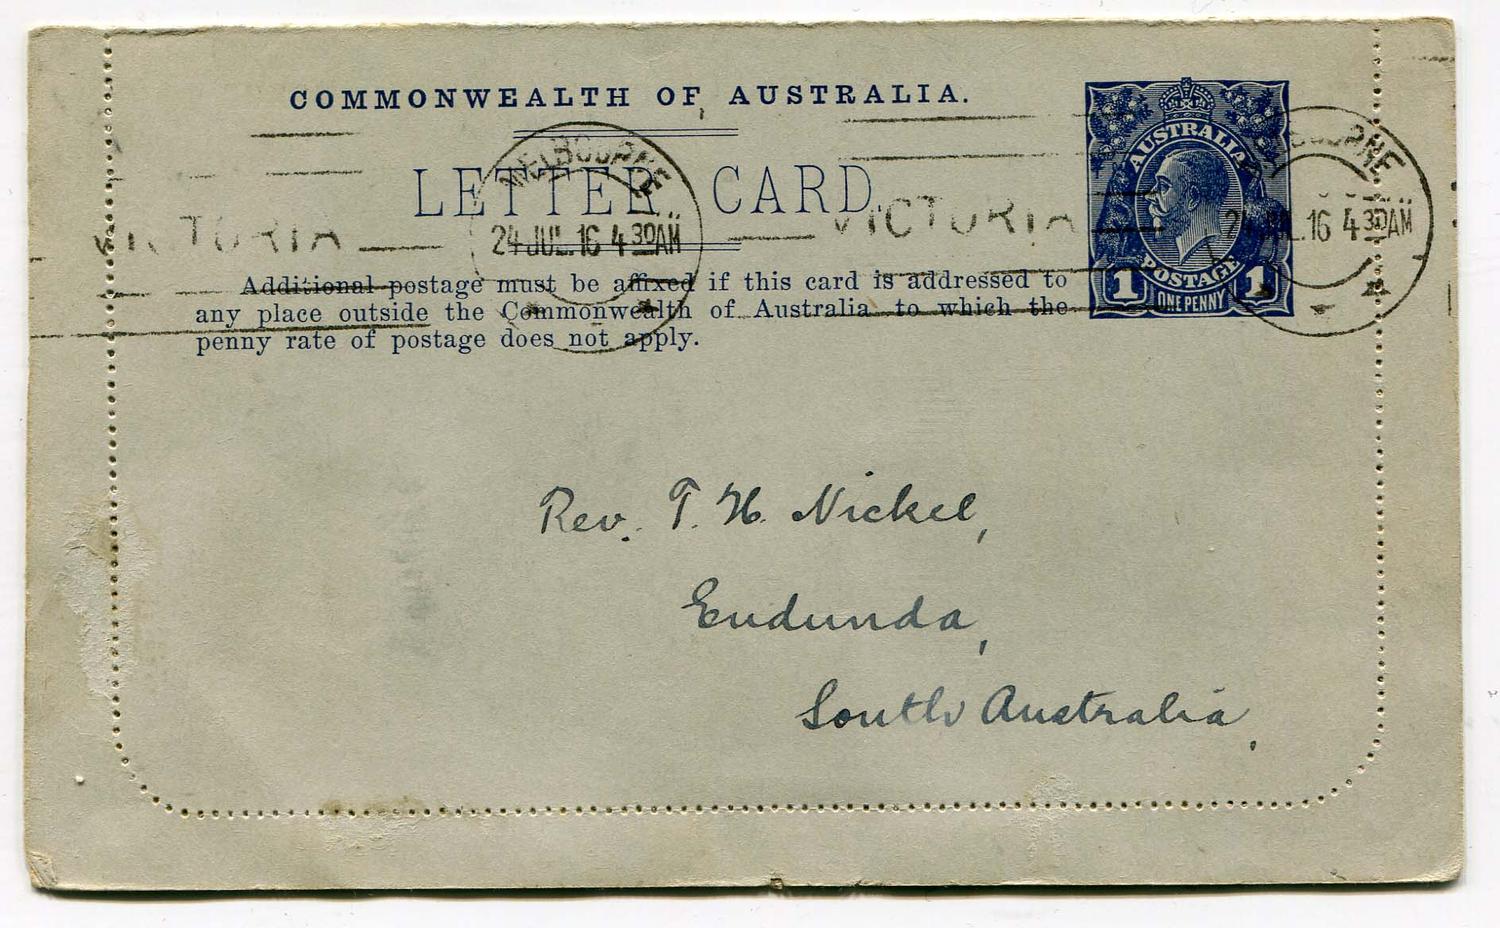 COMMONWEALTH OF AUSTRALIA.
LETTER CARD.
AUSTRALIA
POSTAGE
1 ONE PENNY 1
MELBOURNE
24 JUL. 16 4 30 AM
MELBOURNE
24 JUL. 16 4 30 AM
VICTORIA
VICTORIA
Additional postage must be affixed if this card is addressed to
any place outside the Commonwealth of Australia to which the
penny rate of postage does not apply.
Rev. T. H. Nickel,
Eudunda,
South Australia.